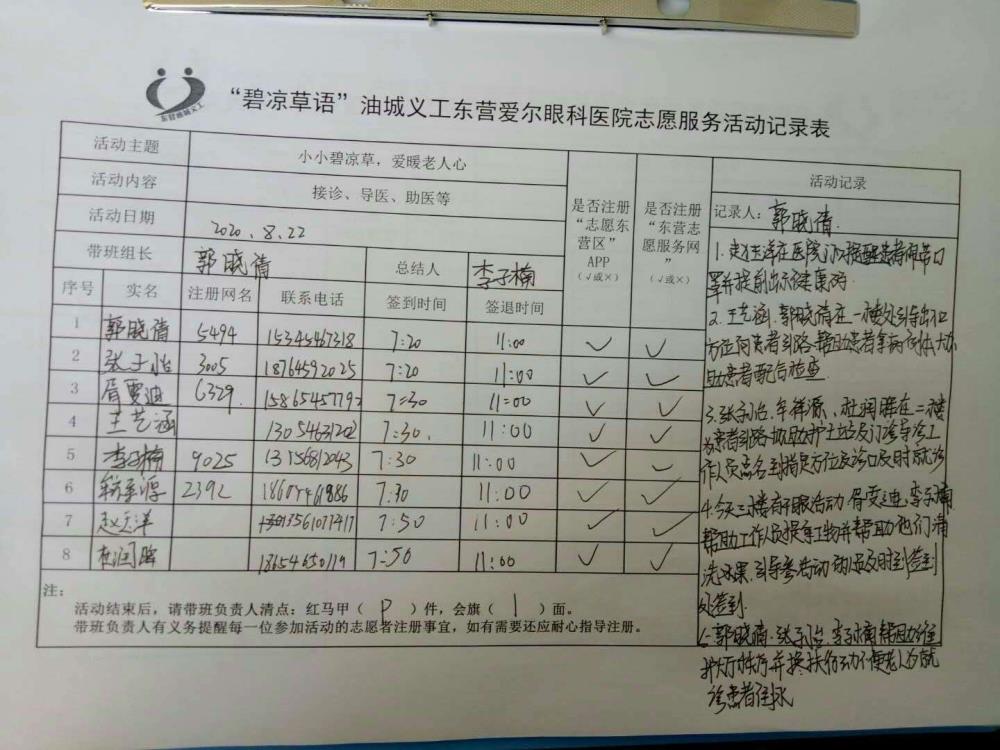 东营油城义工
“碧凉草语”油城义工东营爱尔眼科医院志愿服务活动记录表
活动主题 小小碧凉草，爱暖老人心
活动内容 接诊、导医、助医等
活动日期 2020.8.22
带班组长 郭晓倩 总结人 李子楠
序号 实名 注册网名 联系电话 签到时间 签退时间
是否注册
“志愿东
营区”
APP
（√或×）
是否注册
“东营志
愿服务网
”
（√或×）
1 郭晓倩 5494 15345467318 7:20 11:00 ✓ ✓
2 张子怡 3005 18764592025 7:20 11:00 ✓ ✓
3 胥雯迪 6329. 15865457792 7:30 11:00 ✓ ✓
4 王艺涵 13054631202 7:30. 11:00 ✓ ✓
5 李子楠 9025 13156812043 7:30 11:00 ✓ ✓
6 2392 7:30 11:00 ✓ ✓
7 7:50 11:00 ✓ ✓
8 杜润晖 18654650119 7:50 11:00 ✓ ✓
注：
活动结束后，请带班负责人清点：红马甲（ ）件，会旗（ 1 ）面。
带班负责人有义务提醒每一位参加活动的志愿者注册事宜，如有需要还应耐心指导注册。
活动记录
记录人：郭晓倩
1. 在医院门口提醒患者佩带口
罩并提前出示健康码.
2. 王艺涵、郭晓倩在一楼处引导出口
方位向患者引路、帮助患者拿病例本
助患者配合检查.
3. 张子怡、牟祥源、杜润晖在二楼
为患者引路协助护士站及门诊导诊工
作人员点名到指定方位及诊口及时就诊
4. 今天三楼有活动胥雯迪、李子楠
帮助工作人员提拿物并帮助他们清
洗水果、引导参活动 及时到签到
处签到.
5. 郭晓倩、张子怡、李子楠帮助维
护大厅秩序并搀扶行动不便老人为就
诊患者接水